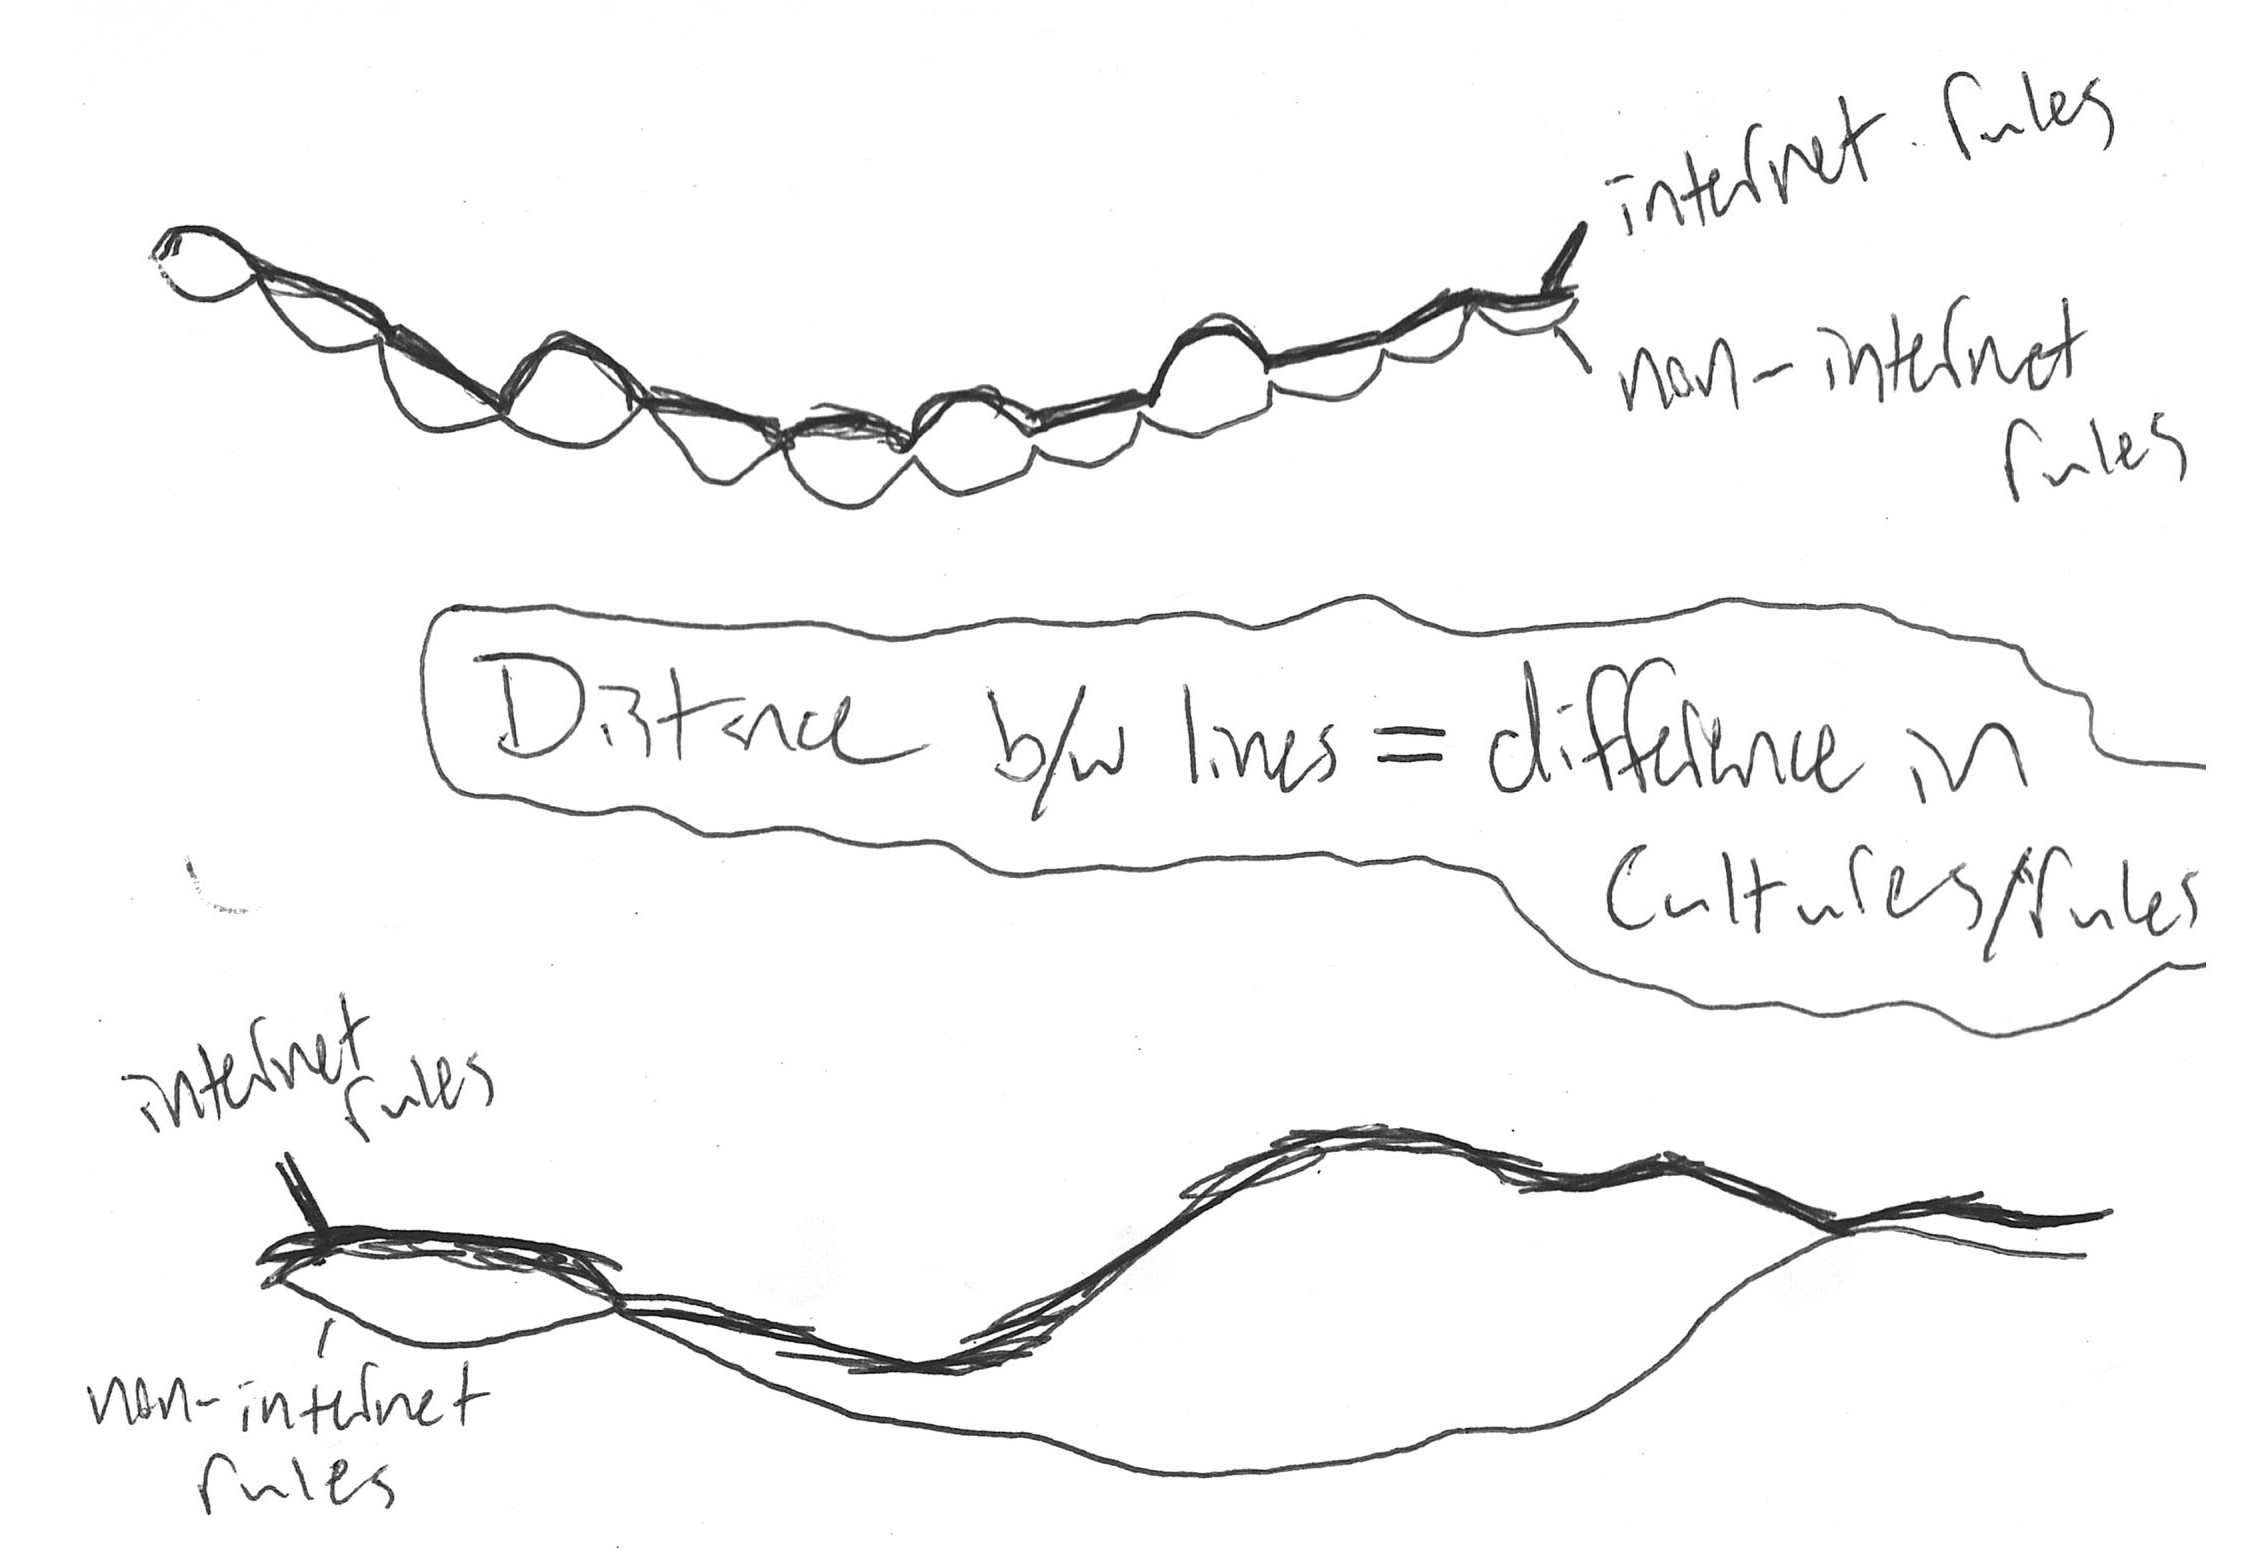 internet rules
non-internet
rules
Distance b/w lines = difference in
Cultures/rules
internet
rules
non-internet
rules